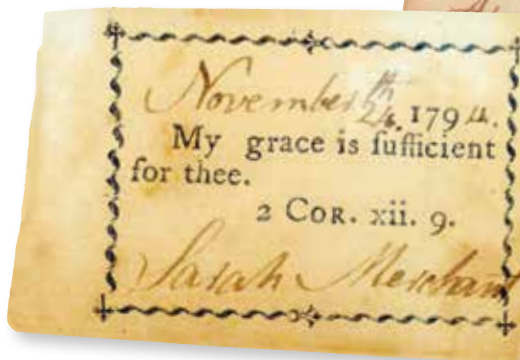 November 24th. 1794.
My grace is ſufficient
for thee.
2 COR. xii. 9.
Sarah Merchant